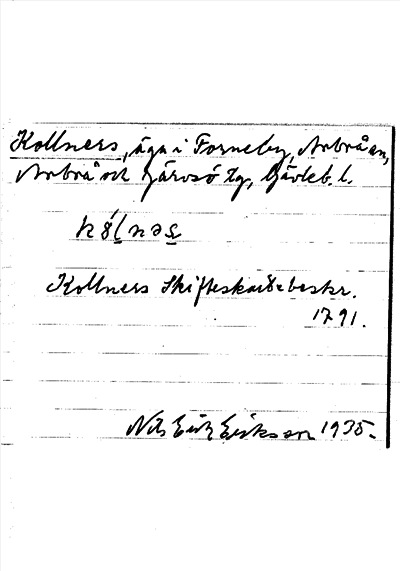 Kollners, äga i Forneby, Arbrå sn,
Arbrå och Järvsö tg, Gävleb. l.
Kollners Skifteskarta beskr.
1791.
Nils Erik Eriksson 1935.